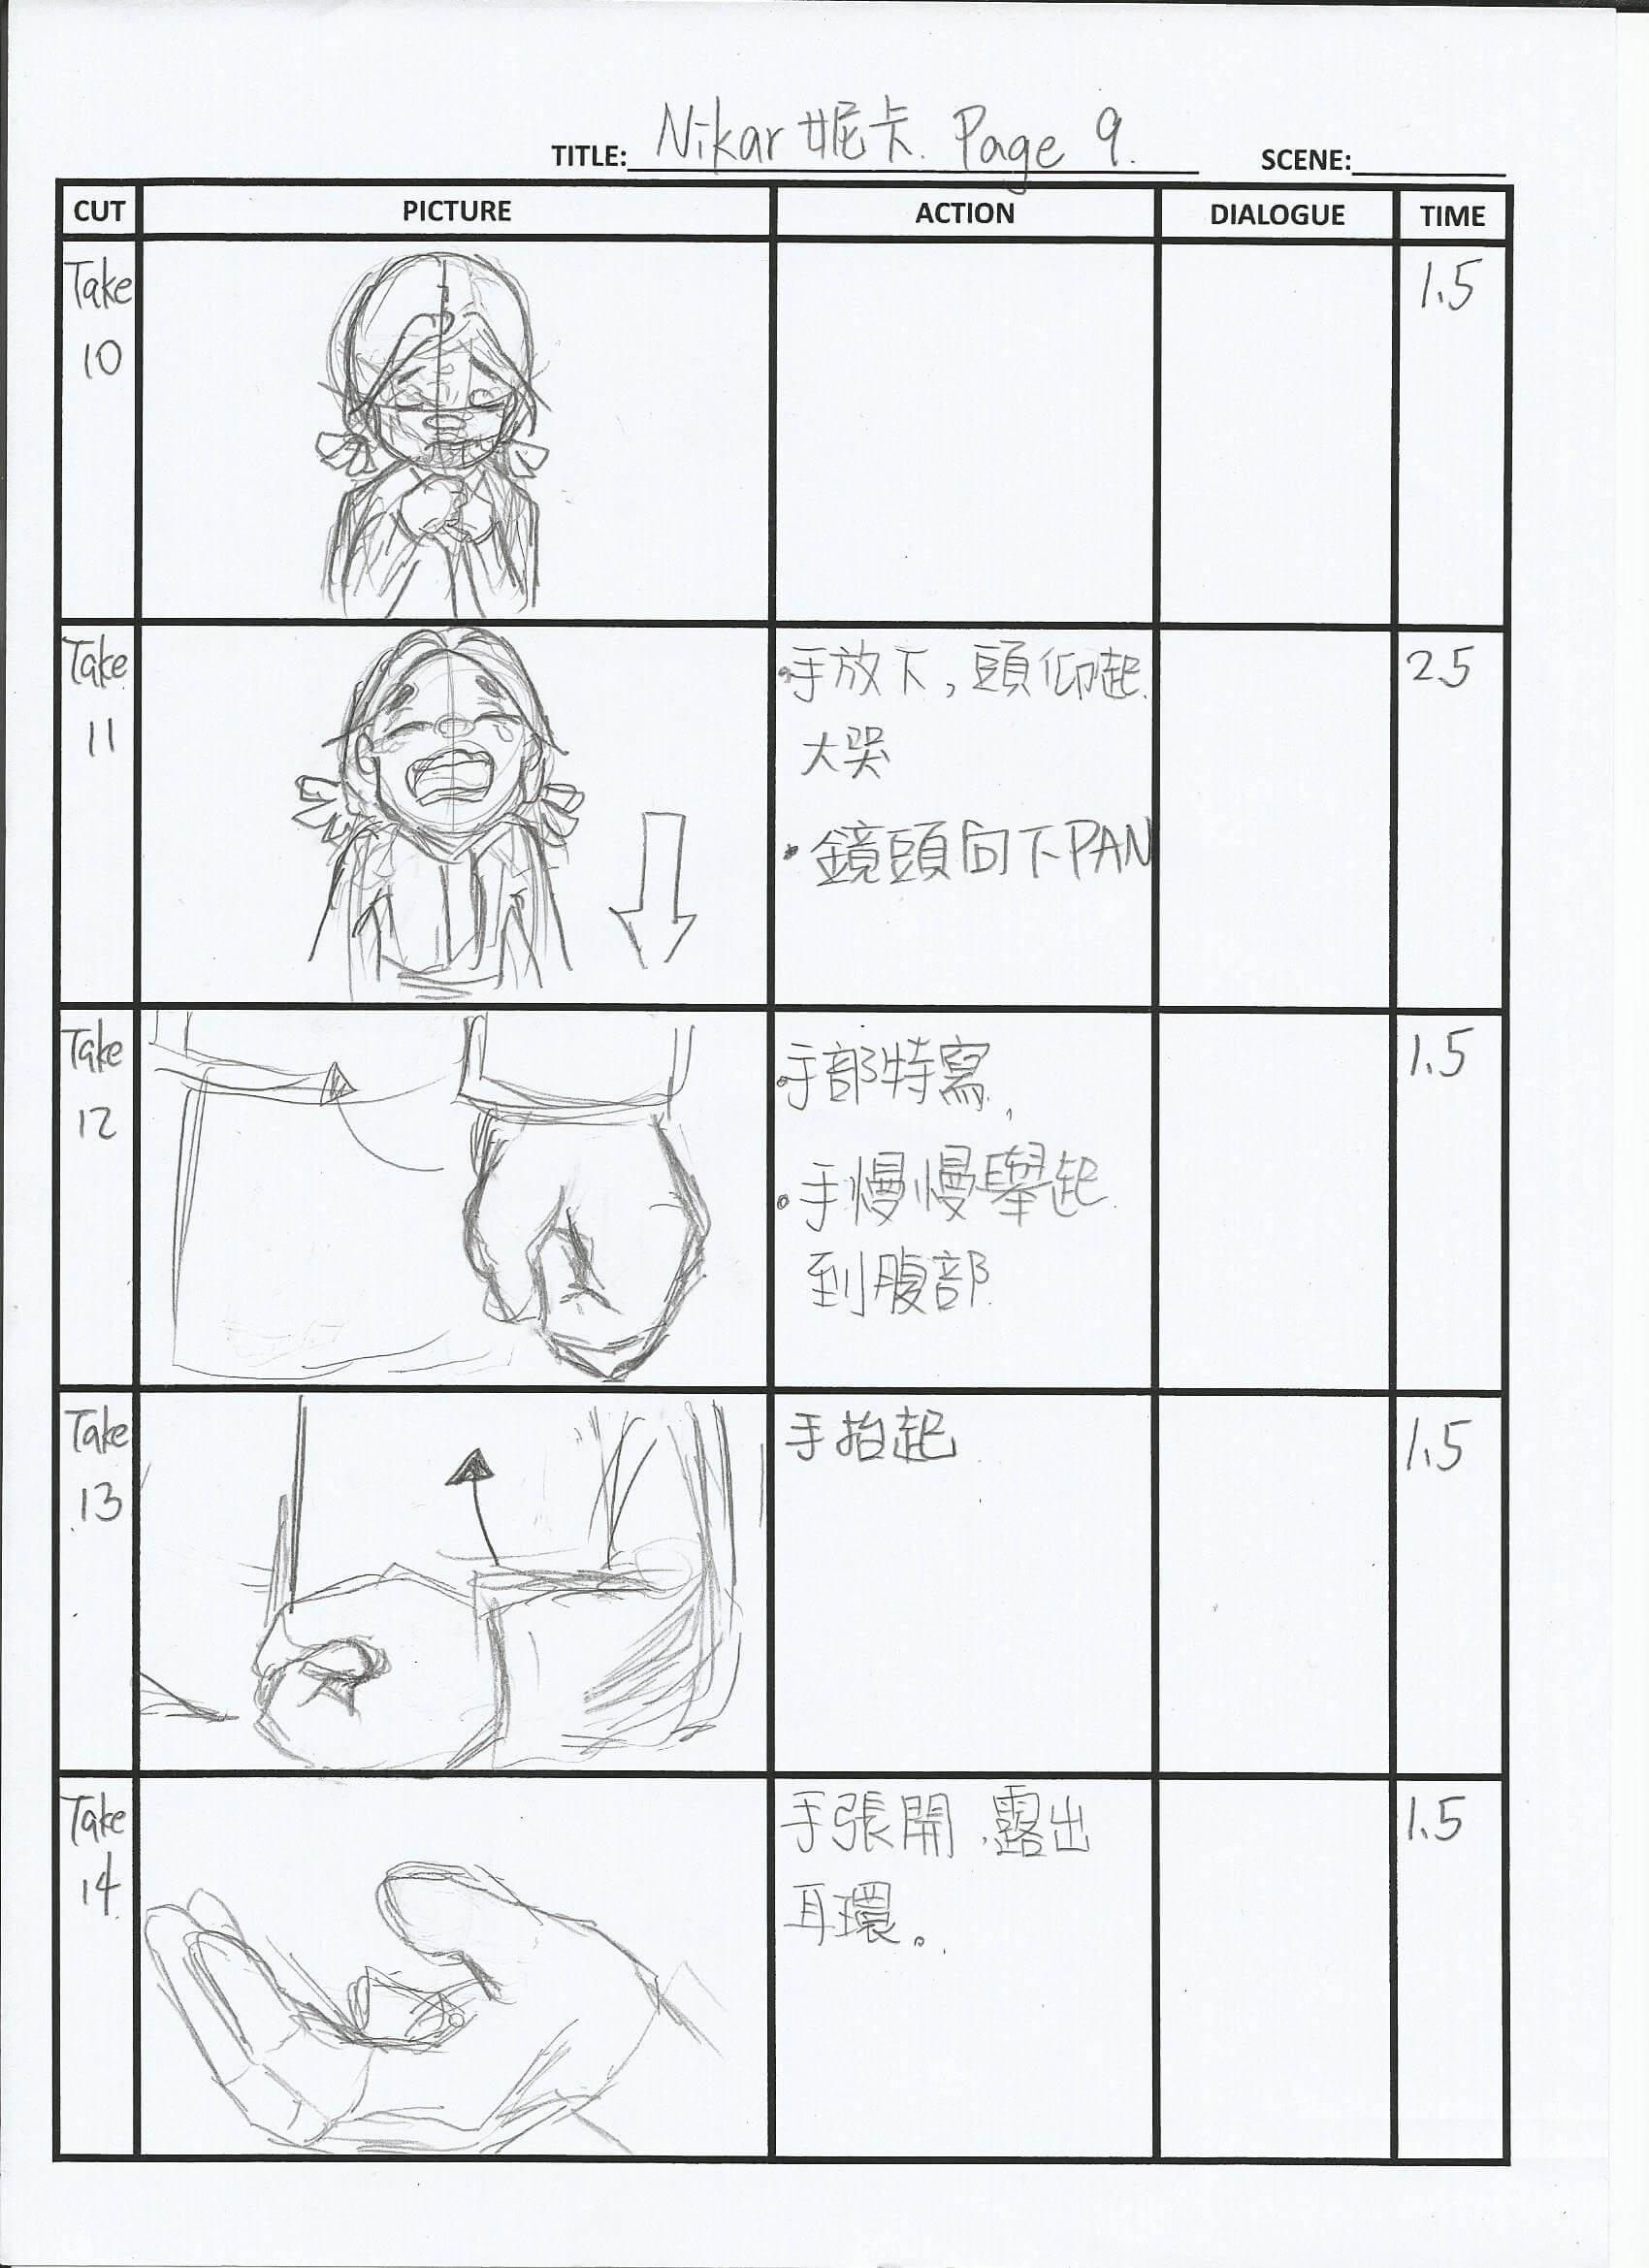 TITLE: Nikar 妮卡. Page 9.
SCENE:
CUT PICTURE ACTION DIALOGUE TIME
Take
10
1.5
Take
11
•手放下,頭仰起.
大哭
•鏡頭向下PAN
25
Take
12
•手部特寫,
•手慢慢舉起.
到腹部.
1.5
Take
13
手抬起
1.5
Take
14
手張開.露出
耳環。
1.5